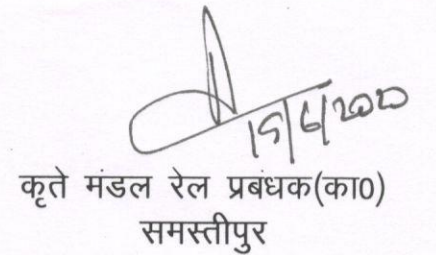 15/6/2020
कृते मंडल रेल प्रबंधक(का0)
समस्तीपुर